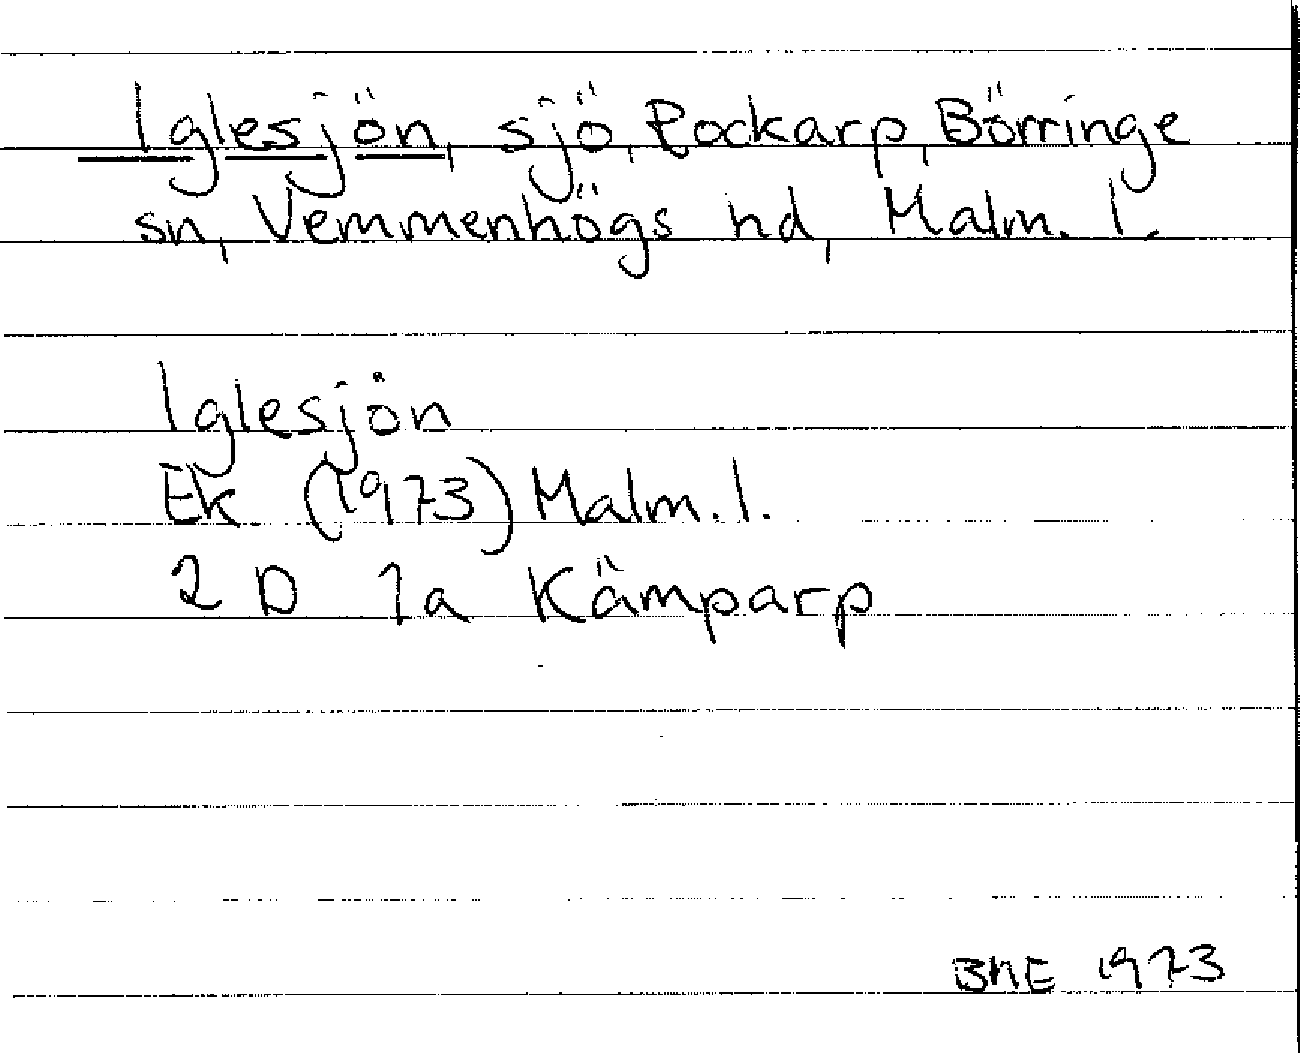 Iglesjön, sjö, Rockarp, Börringe
sn, Vemmenhögs hd, Malm. l.
Iglesjön
Ek (1973) Malm. l.
2 D 1a Kämparp
BNE 1973